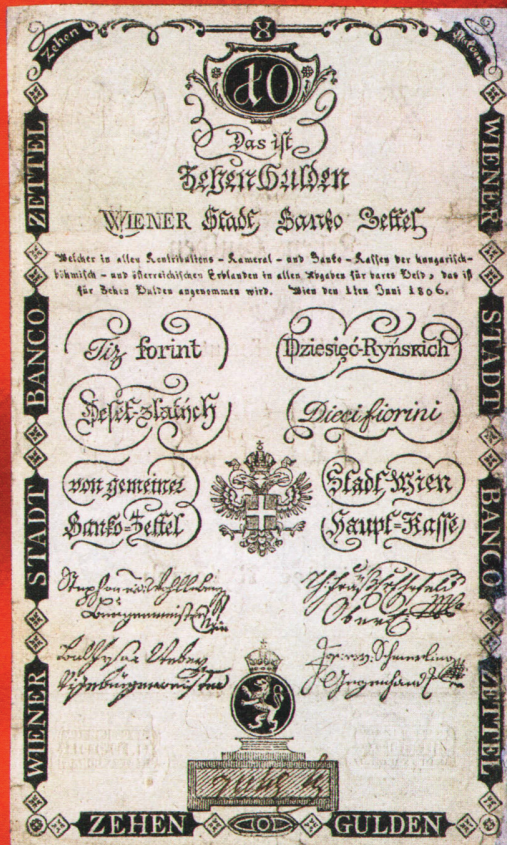 Zehen
X
Gulden
10
Das ist
Zehen Gulden
WIENER Stadt Banko Zettel
Welcher in allen Kontributions - Kameral - und Banko - Kassen der hungarisch-
böhmisch - und österreichischen Erblanden in allen Abgaben für bares Geld, das ist
für Zehen Gulden angenommen wird. Wien den 1ten Juni 1806.
Tiz forint
Dziesięć-Ryńskich
Deset-zlatych
Dieci fiorini
von gemeiner
Stadt-Wien
Banko-Zettel
Haupt-Kasse
Bürgermeister
WIENER STADT BANCO ZETTEL
WIENER STADT BANCO ZETTEL
ZEHEN GULDEN